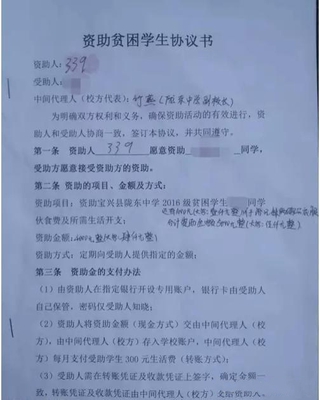 资助贫困学生协议书
资助人：339
受助人：
中间代理人（校方代表）：付燕（陇东中学副校长）
为明确双方权利和义务，确保资助活动的有效进行，资
助人和受助人协商一致，签订本协议，并共同遵守。
第一条 资助人 339 愿意资助 同学，
受助方愿意接受资助方的资助。
第二条 资助的项目、金额及方式：
资助项目：资助宝兴县陇东中学 2016 级贫困学生 同学
伙食费及所需生活开支。
资助金额：
资助方式：定期向受助人提供指定的金额；
第三条 资助金的支付办法
（1）由资助人在指定银行开设专用账户，银行卡由受助人
自己保管，密码仅受助人知晓；
（2）资助人将资助金额（现金方式）交由中间代理人（校
方），由中间代理人（校方）存入学校账户，中间代理人（校
方）每月支付受助学生 300 元生活费（转账方式）；
（3）受助人需在转账凭证及收款凭证上签字，确定金额一
致，转账凭证及收款凭证由中间代理人（校方）交给资助人，